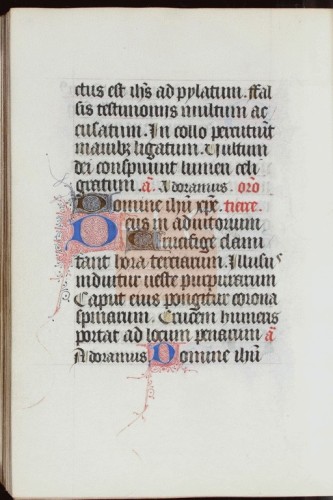 ctus est ihs ad pylatum. ffal
sis testimoniis multum ac
cusatum. In collo percutiūt
manibꝫ ligatum. Uultum
dei conspuunt lumen celi
gratum. a᷑. Adoramus. oro᷑
Domine ihū xpe. tierce.
Deus in adiutorium.
Crucifige clami
tant hora terciarum. Illusus
induitur ueste purpurarum
Caput eius pongitur corona
spinarum. Crucem humeris
portat ad locum penarum a᷑
Adoramus Domine ihū